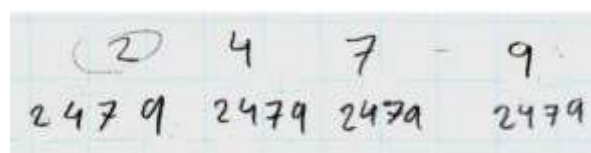 2 4 7 - 9
2479 2479 2479 2479